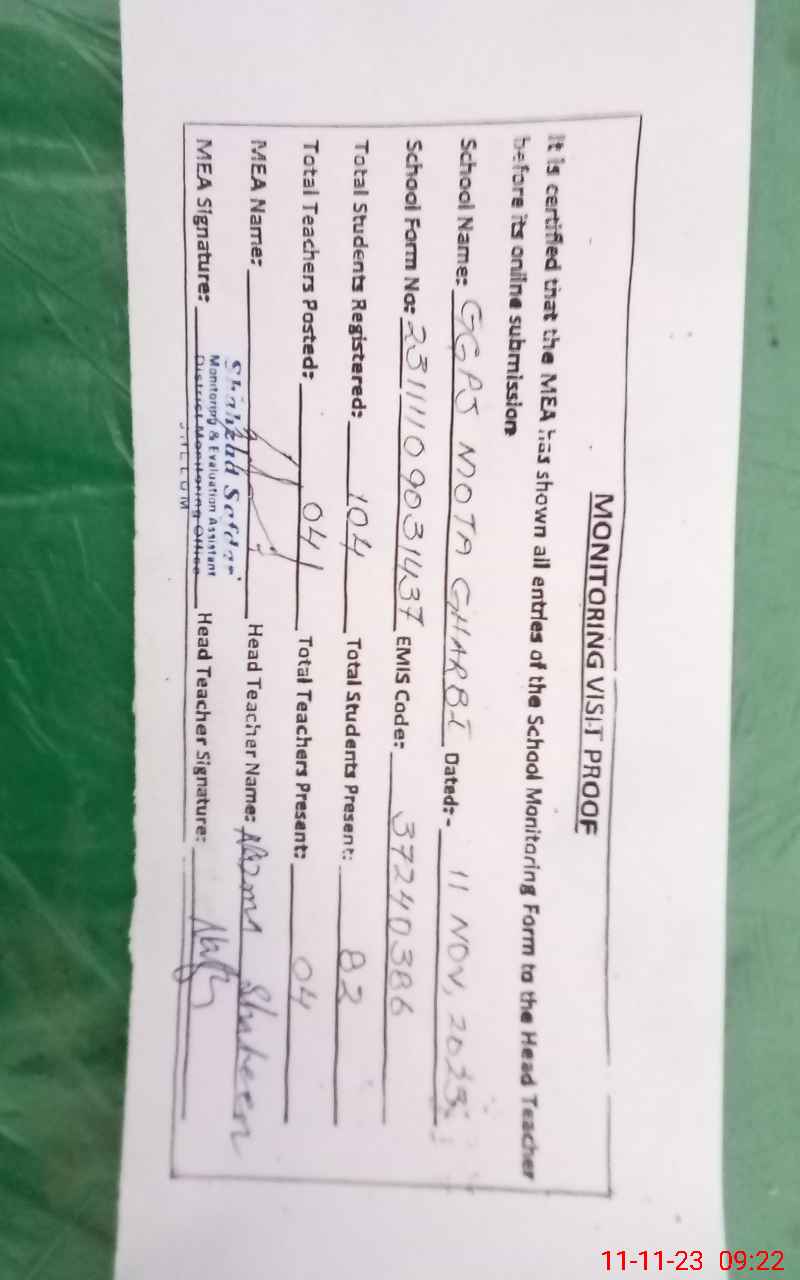 MONITORING VISIT PROOF
It is certified that the MEA has shown all entries of the School Monitoring Form to the Head Teacher
before its online submission
School Name: GGPS MOTA GHARBI Dated:- 11 NOV, 2023.
School Form No: 23111109031437 EMIS Code: 37240386
Total Students Registered: 104 Total Students Present: 82
Total Teachers Posted: 04 Total Teachers Present: 04
MEA Name: Head Teacher Name: Shaheen
Monitoring & Evaluation Assistant
District Monitoring Office
JHELUM
MEA Signature: Head Teacher Signature:
11-11-23 09:22